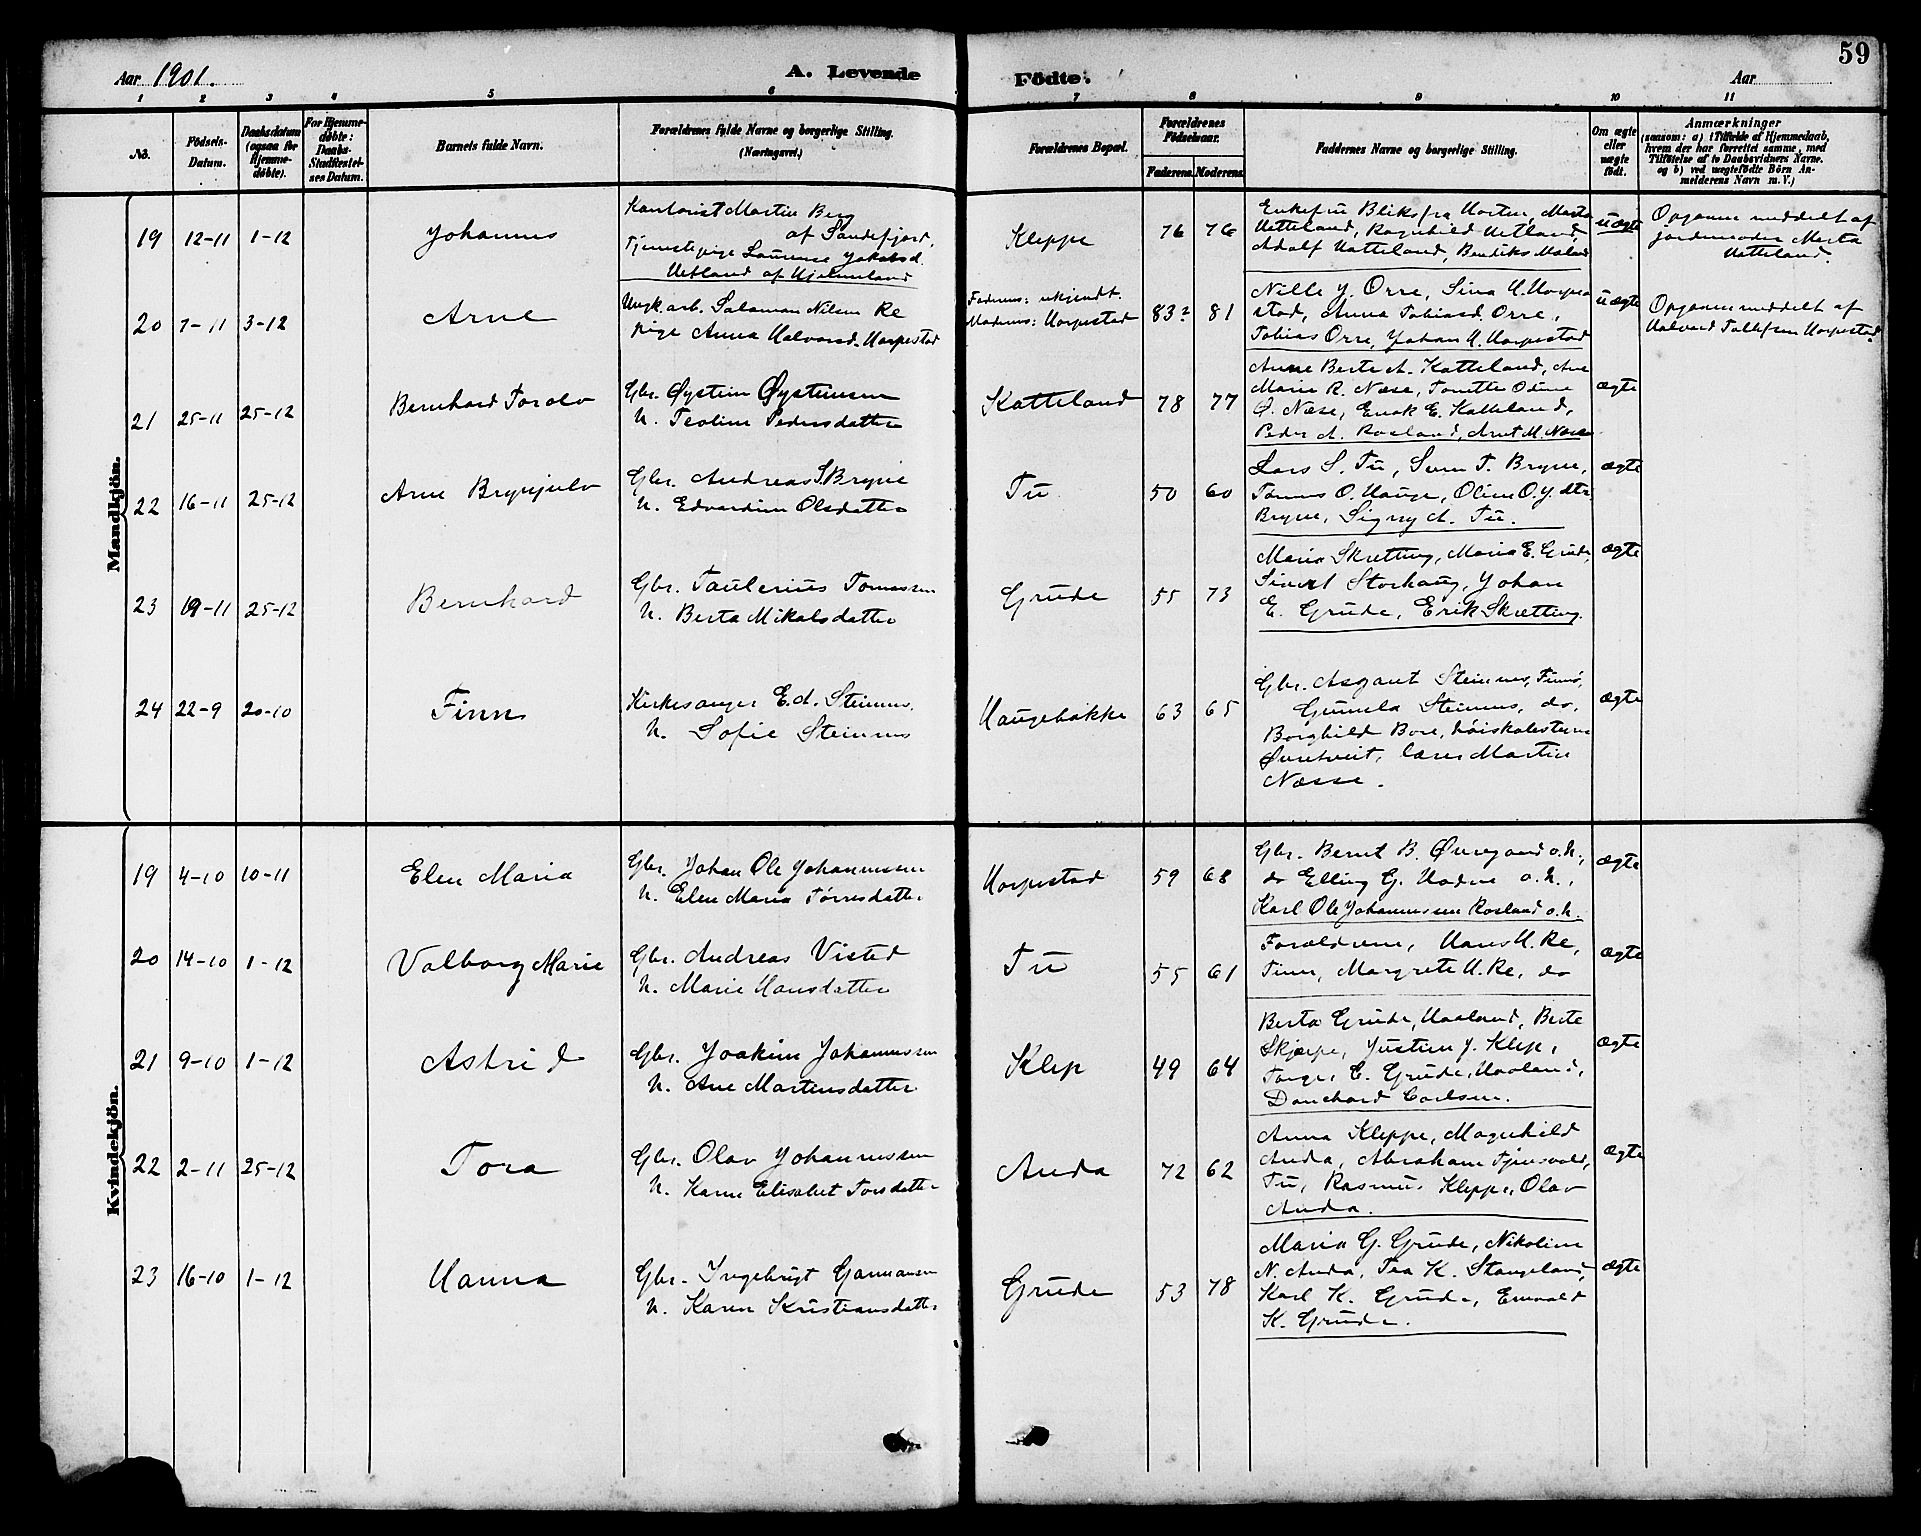 59
Aar 1901.
A. Levende
Födte.
Aar
1 2 3 4 5 6 7 8 9 10 11
No.
Födsels-Datum.
Daabsdatum (ogsaa for Hjemme-döbte).
For Hjemme-döbte: Daabs-Stadfestel-ses Datum.
Barnets fulde Navn.
Forældrenes fulde Navne og borgerlige Stilling. (Næringsvei.)
Forældrenes Bopæl.
Forældrenes Födselsaar.
Faderens. Moderens.
Faddernes Navne og borgerlige Stilling.
Om ægte eller uægte födt.
Anmærkninger
(saasom: a) i Tilfælde af Hjemmedaab, hvem der har forrettet samme, med Tilföielse af to Daabsvidners Navne. og b) ved uægtefödte Börn Anmelderens Navn m. V.)
Mandkjön.
19 12-11 1-12 Johannes
Kontorist Martin Berg
af Sandefjord,
Tjenestepige Laurense Jakobsd.
Hetland af Hjelmeland
Kleppe 76 76
Enkefru Bliksfra Horten, Marta
Hatteland, Ragnhild Hetland,
Adolf Hatteland, Bendiks
uægte
Opgaven meddelt af
jordemoder Marta
Hatteland.
20 7-11 3-12 Arne
Ungk. arb. Salamon Nilsen Re
pige Anna Halvorsd. Horpestad
Faderens: ukjendt.
Moderens: Horpestad 83? 81
Nille J. Orre, Sina H. Horpe-
stad, Anna Tobiasd. Orre,
Tobias Orre, Johan H. Horpestad
uægte
Opgaven meddelt af
Halvard Tollefsen Horpestad.
21 25-11 25-12 Bernhard Torolv
Gbr. Øystein Øysteinsen
H. Teoline Pedersdatter
Katteland 78 77
Anne Berte A. Katteland, Ane
Marie R. Næse, Tonette Oline
O. Næse, Enok E. Katteland,
Peder A. Rosland, Arnt M. Næse
ægte
22 16-11 25-12 Arne Brynjulv
Gbr. Andreas S. Bryne
H. Edvardine Olsdatter
Tu 50 60
Lars S. Tu, Sven T. Bryne,
Tønnes O. Hauge, Oline O. J. dtr
Bryne, Signy A. Tu.
ægte
23 19-11 25-12 Bernhard
Gbr. Taulerius Tomassen
H. Berta Mikalsdatter
Grude 55 73
Maria Skretting, Maria E. Grude,
Sivert Storhaug, Johan
E. Grude, Erik Skretting.
ægte
24 22-9 20-10 Finn
Kirkesanger E. A. Steinnes,
H. Sofie Steinnes
Haugebakke 63 65
Gbr. Asgaut Steinnes, Finnø,
Gunnela Steinnes, do,
Borghild Bore, høiskolestyrer
Øvretveit, lærer Martin
Næsse.
ægte
Kvindekjön.
19 4-10 10-11 Elen Maria
Gbr. Johan Ole Johannessen
H. Elen Maria Tørresdatter
Horpestad 59 68
Gbr. Bernt B. Øvregaard o.h.,
do Elling G. Hodne o.h.,
Karl Ole Johannessen Rosland o.h.
ægte
20 14-10 1-12 Valborg Marie
Gbr. Andreas Visted
H. Marie Hansdatter
Tu 55 61
Forældrene, Hans H. Re,
Time, Margrete H. Re, do
ægte
21 9-10 1-12 Astrid
Gbr. Joakim Johannessen
H. Ane Martensdatter
Klep 49 64
Berta Grude, Haaland, Berte
Skjærpe, Justien J. Klep,
Torger E. Grude, Haaland,
Danchard Carlsen.
ægte
22 2-11 25-12 Tora
Gbr. Olav Johannessen
H. Karen Elisabet Torsdatter
Anda 72 62
Anna Kleppe, Magnhild
Anda, Abraham Tjensvold,
Tu, Rasmus Kleppe, Olav
Anda.
ægte
23 16-10 1-12 Hanna
Gbr. Ingebrigt Garmansen
H. Karen Kristiansdatter
Grude 53 78
Maria G. Grude, Nikoline
N. Anda, Tea K. Stangeland,
Karl K. Grude, Enevald
K. Grude.
ægte